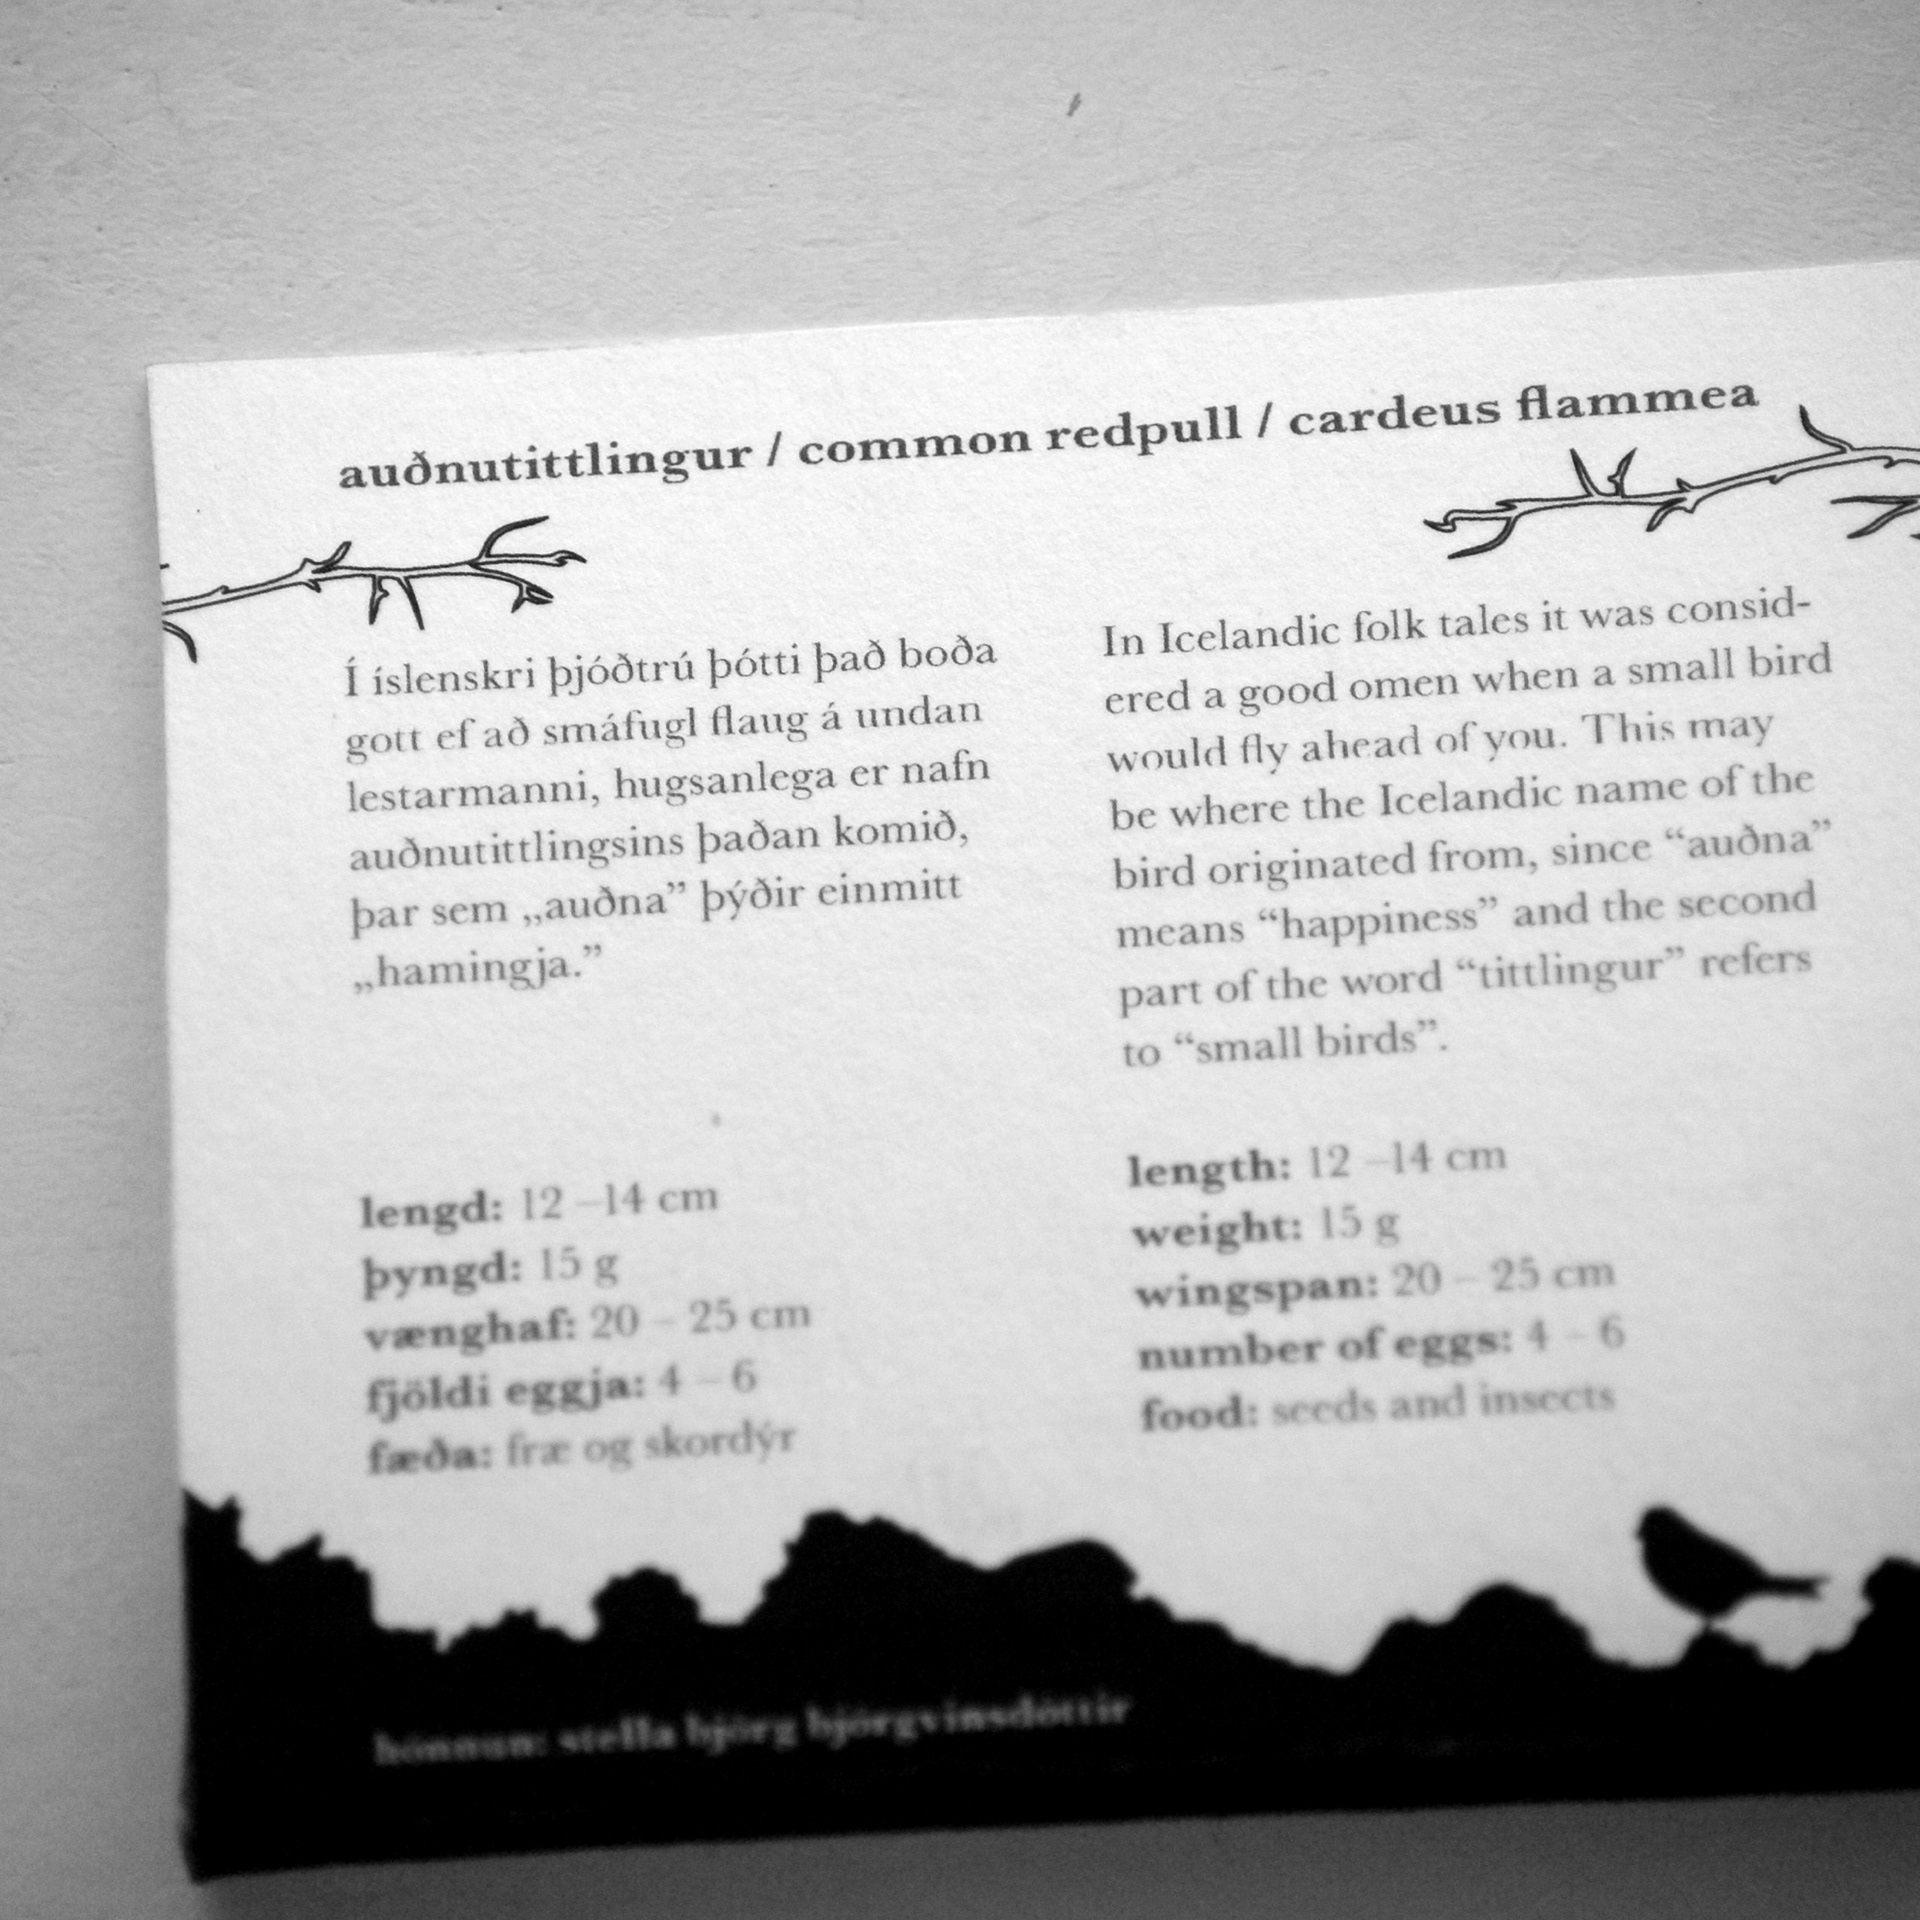 auðnutittlingur / common redpull / cardeus flammea
Í íslenskri þjóðtrú þótti það boða
gott ef að smáfugl flaug á undan
lestarmanni, hugsanlega er nafn
auðnutittlingsins þaðan komið,
þar sem „auðna” þýðir einmitt
„hamingja.”
lengd: 12 –14 cm
þyngd: 15 g
vænghaf: 20 – 25 cm
fjöldi eggja: 4 – 6
fæða: fræ og skordýr
In Icelandic folk tales it was consid-
ered a good omen when a small bird
would fly ahead of you. This may
be where the Icelandic name of the
bird originated from, since “auðna”
means “happiness” and the second
part of the word “tittlingur” refers
to “small birds”.
length: 12 –14 cm
weight: 15 g
wingspan: 20 – 25 cm
number of eggs: 4 – 6
food: seeds and insects
hönnun: stella björg björgvinsdóttir